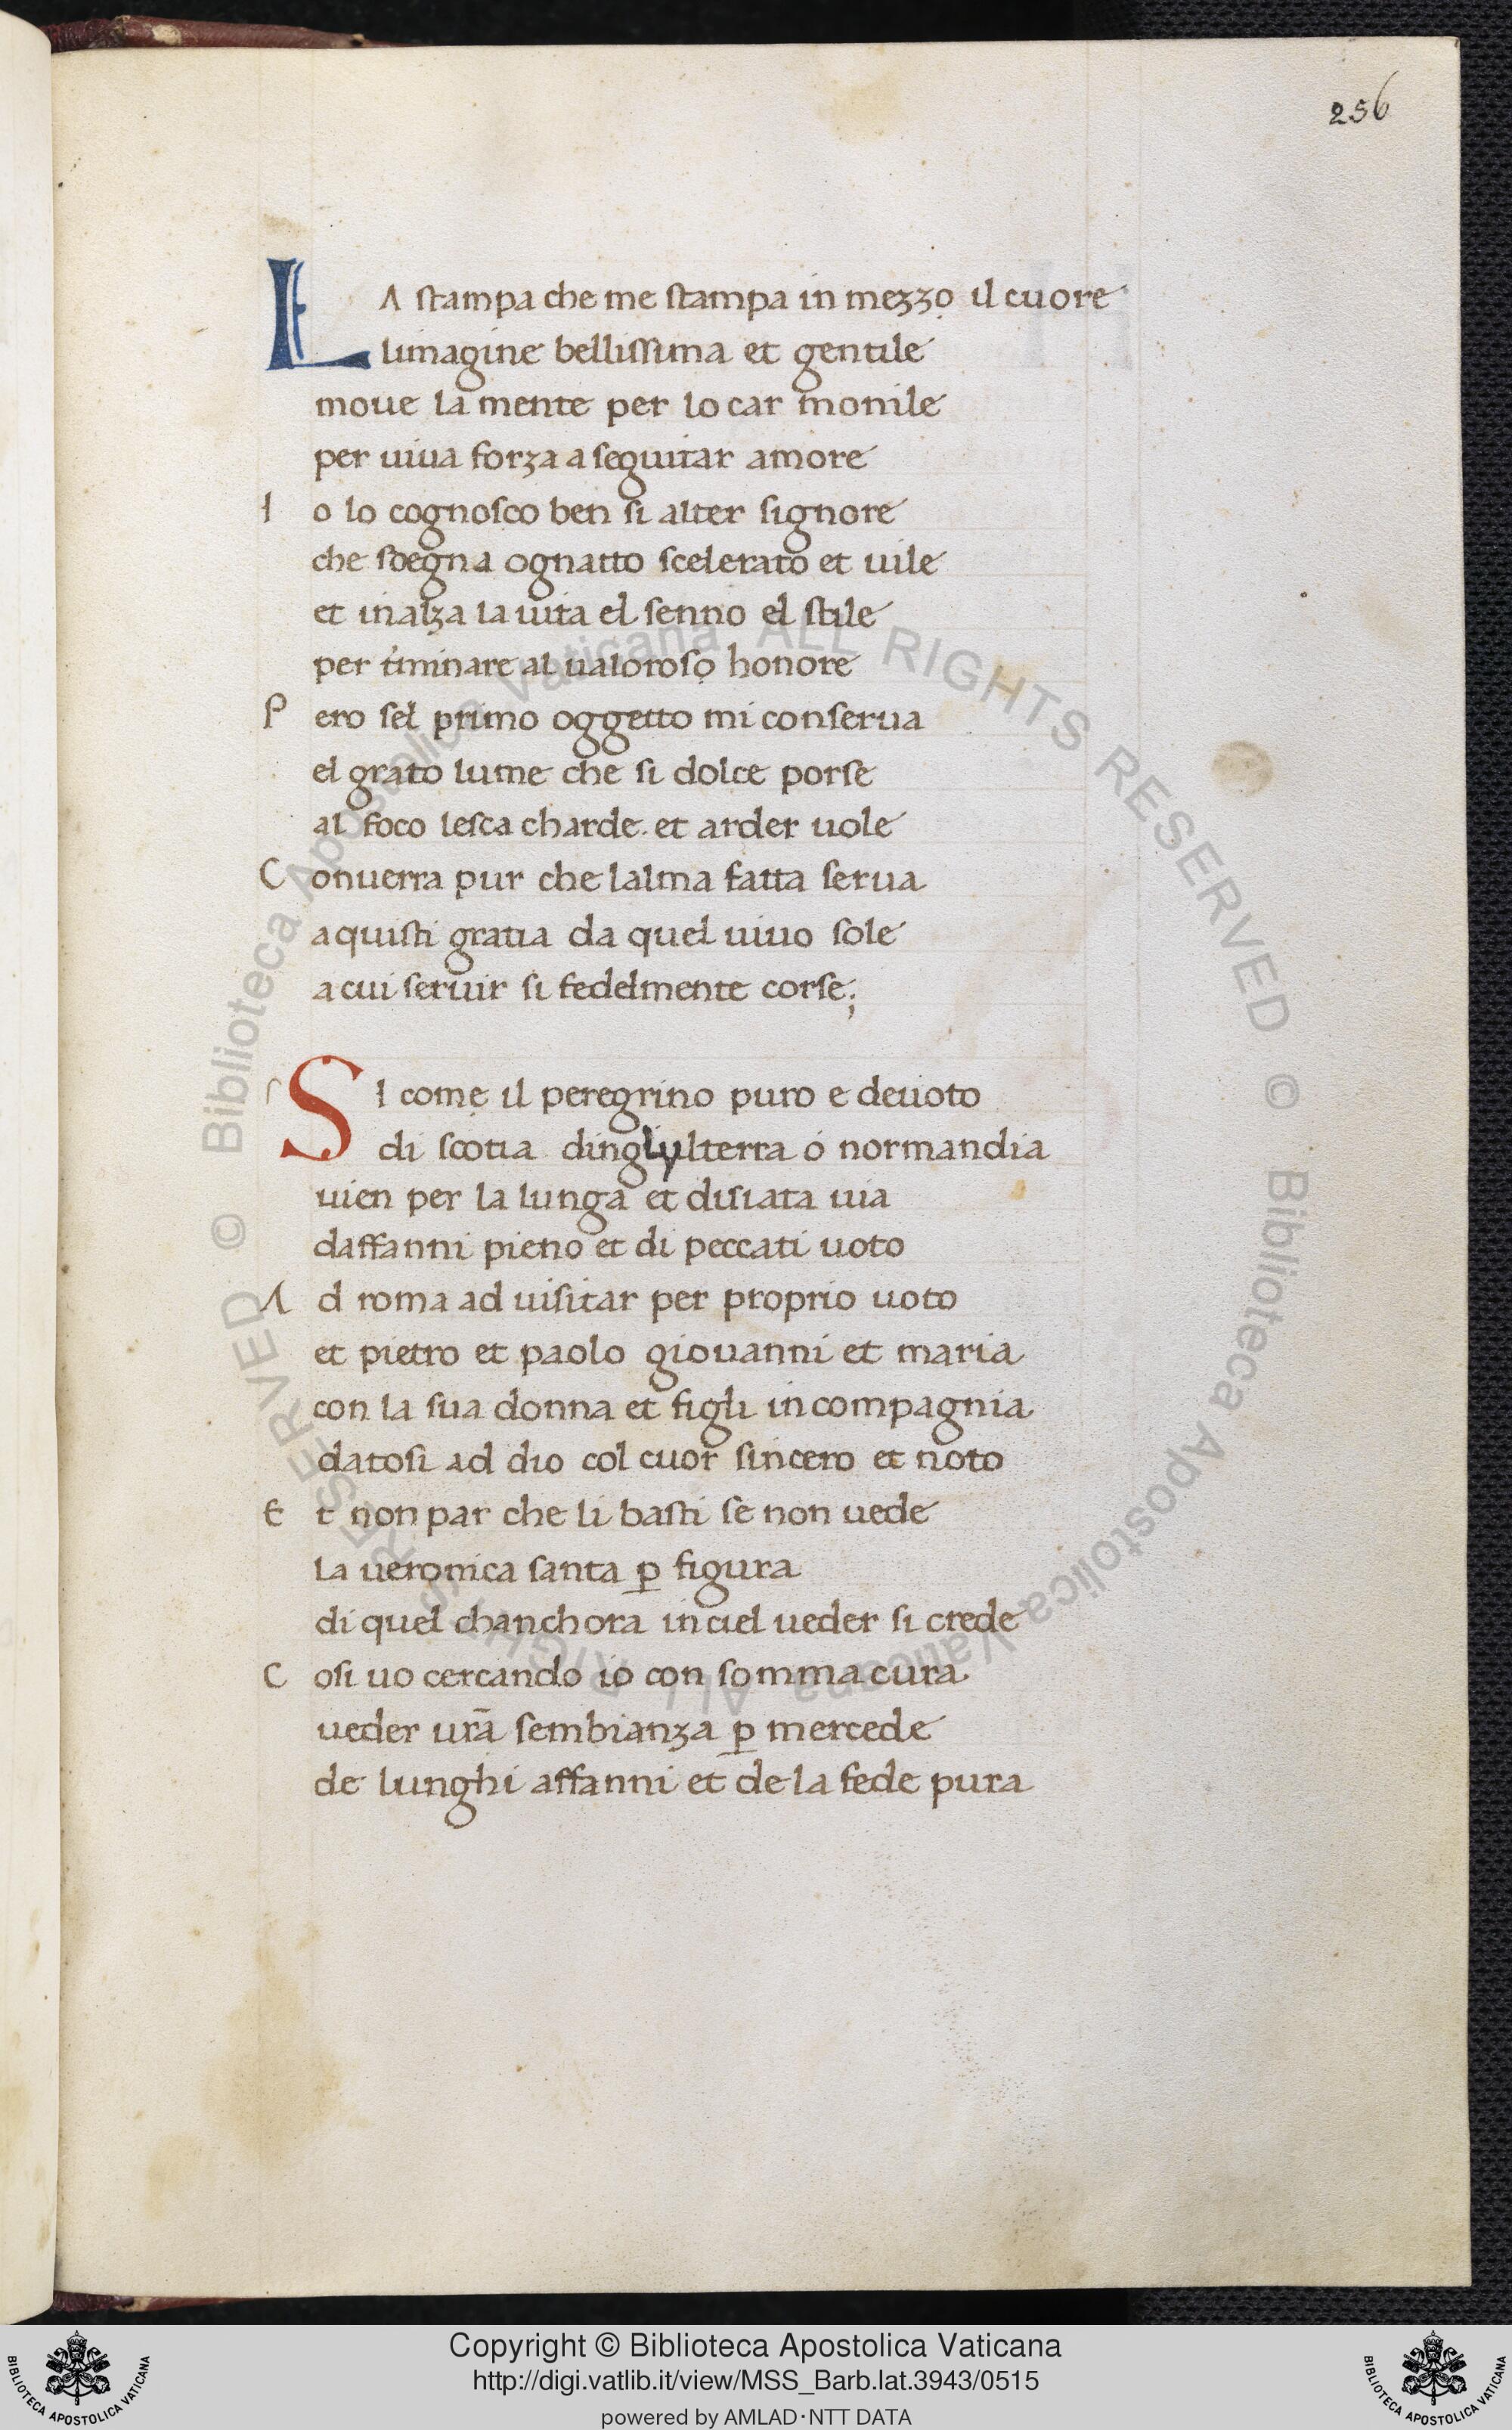 256
LA stampa che me stampa in mezzo il cuore
limagine bellissima et gentile
moue la mente per lo car monile
per uiua forza a seguitar amore
Io lo cognosco ben si alter signore
che sdegna ognatto scelerato et uile
et inalza la uita el senno el stile
per t̉minare al ualoroso honore
Pero sel primo oggetto mi conserua
el grato lume che si dolce porse
al foco lesca charde. et arder uole
Conuerra pur che lalma fatta serua
aquisti gratia da quel uiuo sole
a cui seruir si fedelmente corse;
SI come il peregrino puro e deuoto
di scotia dinglylterra o normandia
uien per la lunga et disiata uia
daffanni pieno et di peccati uoto
Ad roma ad uisitar per proprio uoto
et pietro et paolo giouanni et maria
con la sua donna et figli in compagnia
datosi ad dio col cuor sincero et noto
Et non par che li basti se non uede
la ueronica santa ꝑ figura
di quel chanchora in ciel ueder si crede
Cosi uo cercando io con somma cura
ueder ura̅ sembianza ꝑ mercede
de lunghi affanni et de la fede pura
© Biblioteca Apostolica Vaticana ALL RIGHTS RESERVED © Biblioteca Apostolica Vaticana ALL RIGHTS RESERVED
Copyright © Biblioteca Apostolica Vaticana
http://digi.vatlib.it/view/MSS_Barb.lat.3943/0515
powered by AMLAD·NTT DATA
BIBLIOTECA APOSTOLICA VATICANA
BIBLIOTECA APOSTOLICA VATICANA